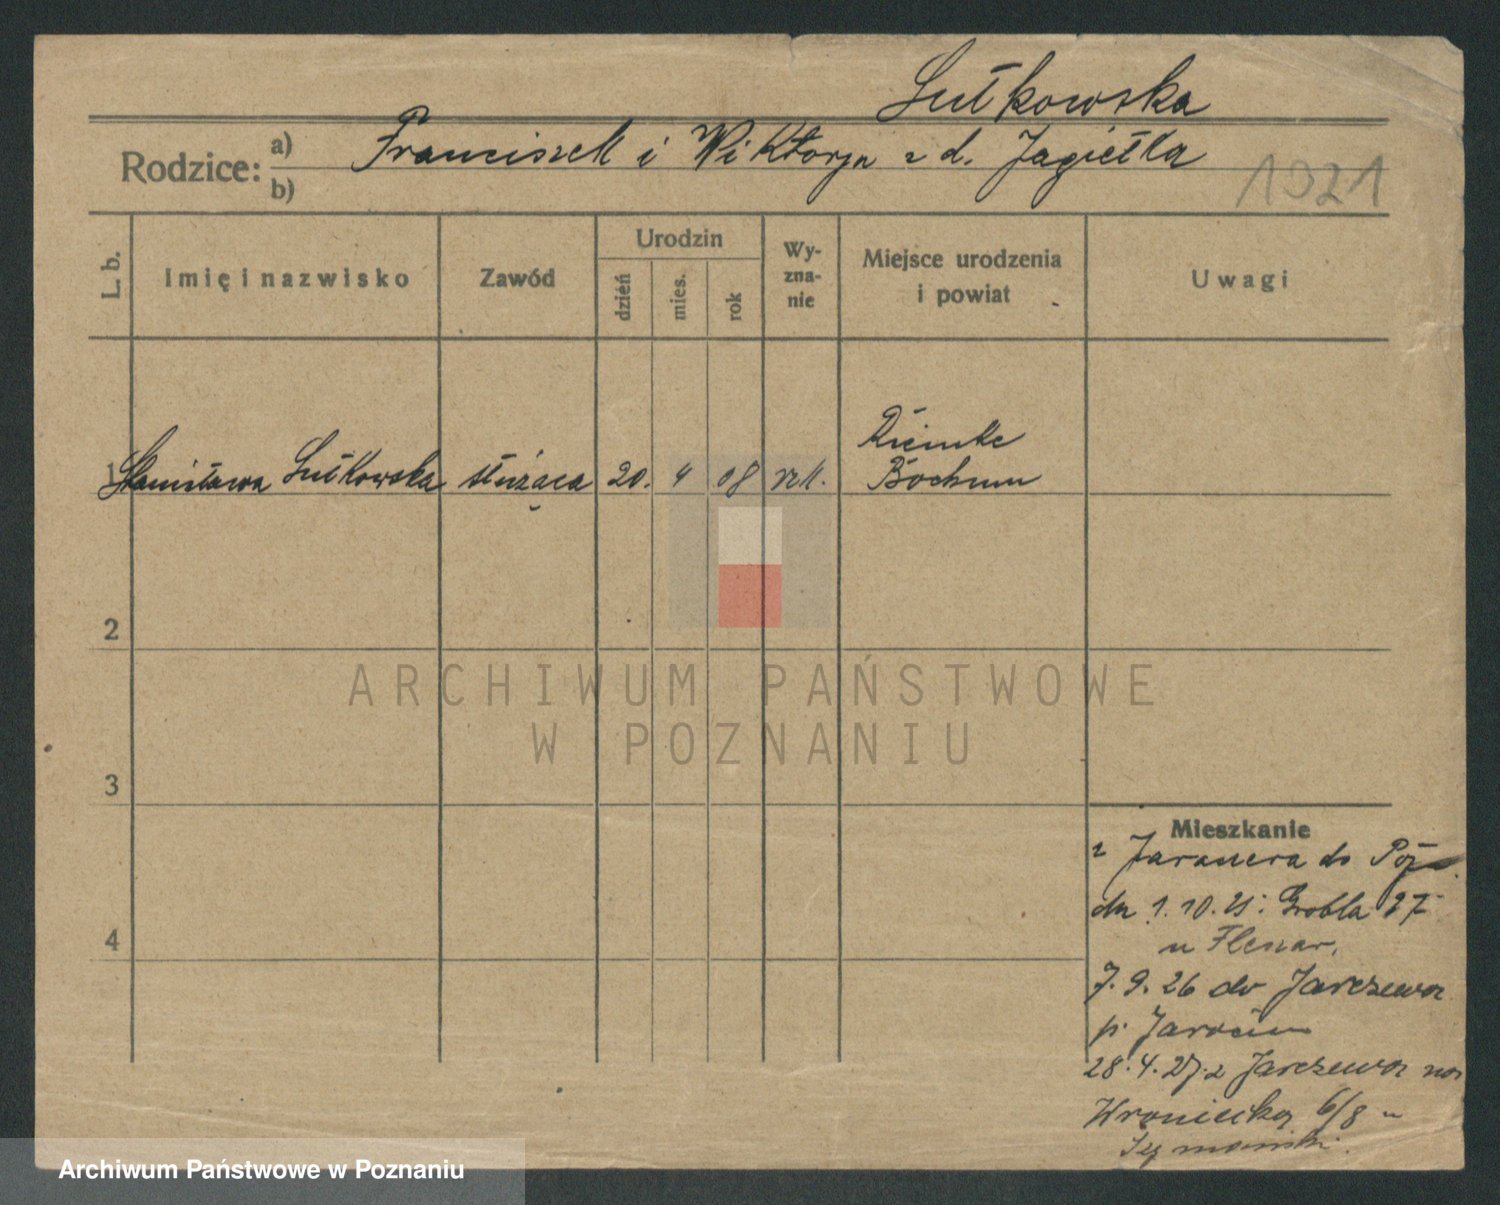 Sułkowska
Rodzice: a) Franciszek i Wiktorja z d. Jagiełka
b)
1921
L. b.
Imię i nazwisko
Zawód
Urodzin
dzień
mies.
rok
Wy-
zna-
nie
Miejsce urodzenia
i powiat
Uwagi
1 Stanisława Sułkowska służąca 20. 4 08 rzk. Riemke
Bochum
2
3
4
ARCHIWUM PAŃSTWOWE
W POZNANIU
Mieszkanie
z do Poz
dn 1.10.21: Grobla 27
u Flenar,
7.9.26 do Jarczewa
p. Jarocin
28.4.27. z Jarczewa na
Wroniecka 6/8 u
Archiwum Państwowe w Poznaniu